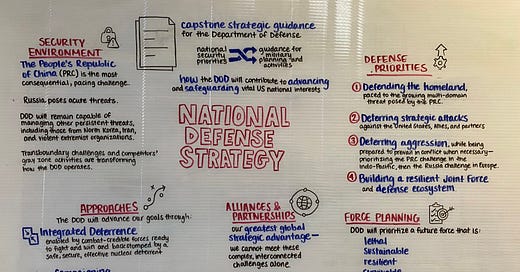 SECURITY
ENVIRONMENT
The People's Republic
of China (PRC) is the most
consequential, pacing challenge.
Russia poses acute threats.
DOD will remain capable of
managing other persistent threats,
including those from North Korea, Iran,
and violent extremist organizations.
Transboundary challenges and competitors'
gray zone activities are transforming
how the DOD operates.
capstone strategic guidance
for the Department of Defense
national
security
priorities
guidance for
military
planning and
activities
how the DOD will contribute to advancing
and safeguarding vital US national interests
NATIONAL
DEFENSE
STRATEGY
DEFENSE
PRIORITIES
1 Defending the homeland,
paced to the growing multi-domain
threat posed by the PRC.
2 Deterring strategic attacks
against the United States, Allies, and partners
3 Deterring aggression, while being
prepared to prevail in conflict when necessary—
prioritizing the PRC challenge in the
Indo-Pacific, then the Russia challenge in Europe.
4 Building a resilient Joint Force
and defense ecosystem
APPROACHES
The DOD will advance our goals through:
Integrated Deterrence
enabled by combat-credible forces ready
to fight and win and backstopped by a
safe, secure, effective nuclear deterrent
ALLIANCES &
PARTNERSHIPS
our greatest global
strategic advantage—
we cannot meet these
complex, interconnected
challenges alone
FORCE PLANNING
DOD will prioritize a future force that is:
lethal
sustainable
resilient